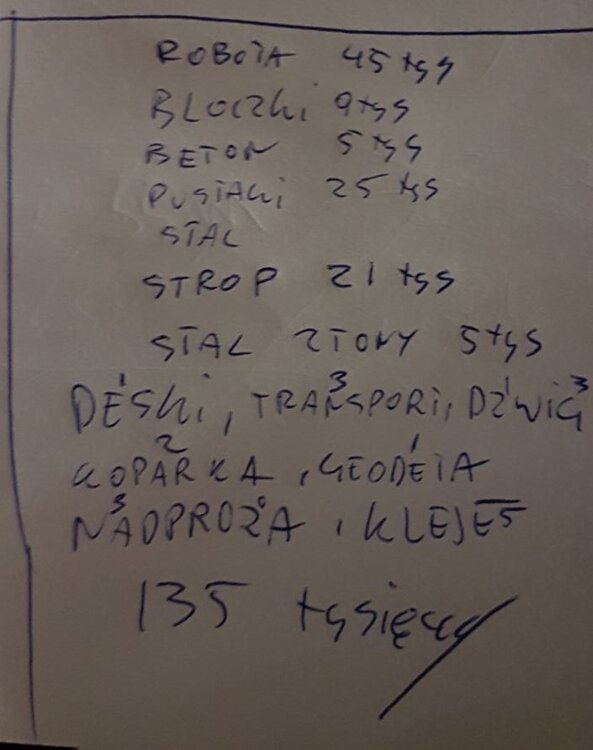 ROBOTA 45 tys
BLOCZKi 9 tys
BETON 5 tys
PUSTAKi 25 tys
STAL
STROP 21 tys
STAL 2 TONY 5 tys
1 3 1 3
DESKi, TRANSPORT, DŹWIG
2 1
KOPARKA, GEODETA
3
NADPROŻA, KLEJE 5
135 tysięcy